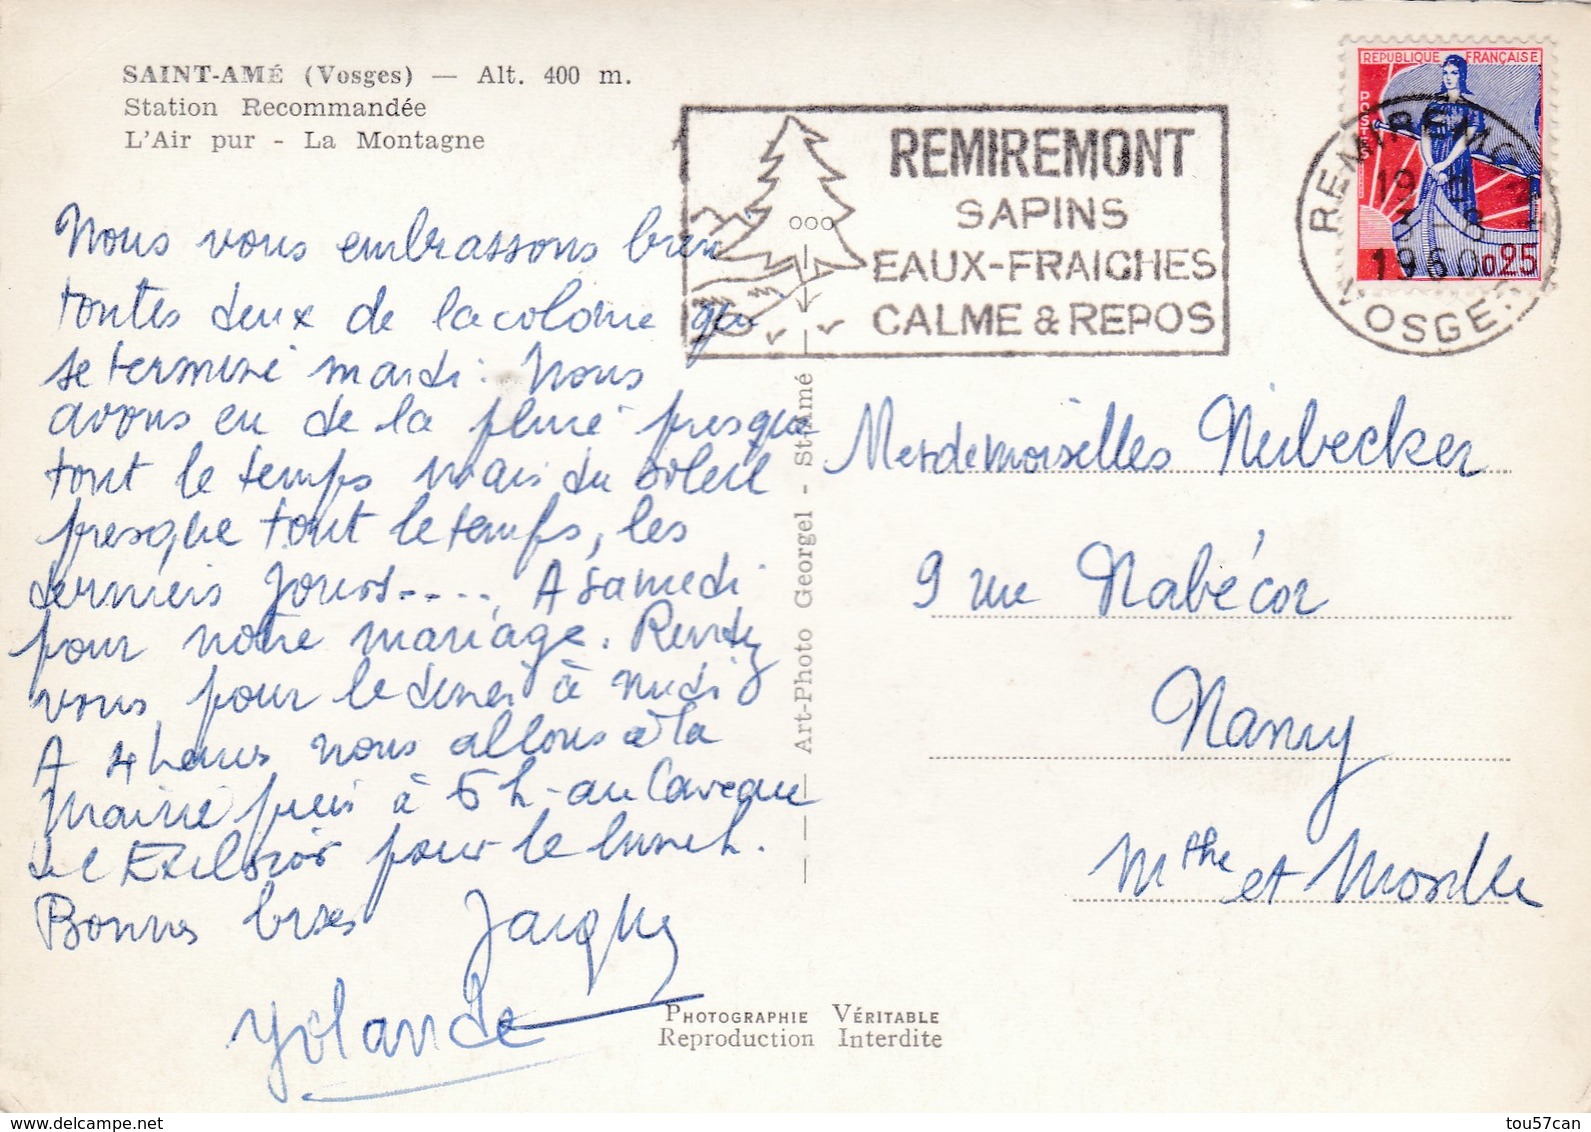 SAINT-AMÉ (Vosges) — Alt. 400 m.
Station Recommandée
L'Air pur - La Montagne
Nous vous embrassons bien
toutes deux de la colonie qui
se termine mardi. Nous
avons eu de la pluie presque
tout le temps mais du soleil
presque tout le temps, les
derniers jours...., A samedi
pour notre mariage. Rendez
vous pour le diner à midi
A 4 heures nous allons à la
Mairie puis à 5 h au Caveau
de l'Exelsior pour le lunch.
Bonnes bises Jacques
Yolande
REMIREMONT
SAPINS
EAUX-FRAICHES
CALME & REPOS
REPUBLIQUE FRANÇAISE
POSTES
0,25
REMIREMONT
19
1960
VOSGES
Art-Photo Georgel - St-Amé
Mesdemoiselles Neibecker
9 rue Nabécor
Nancy
Mthe et Moselle
PHOTOGRAPHIE VÉRITABLE
Reproduction Interdite
tou57can